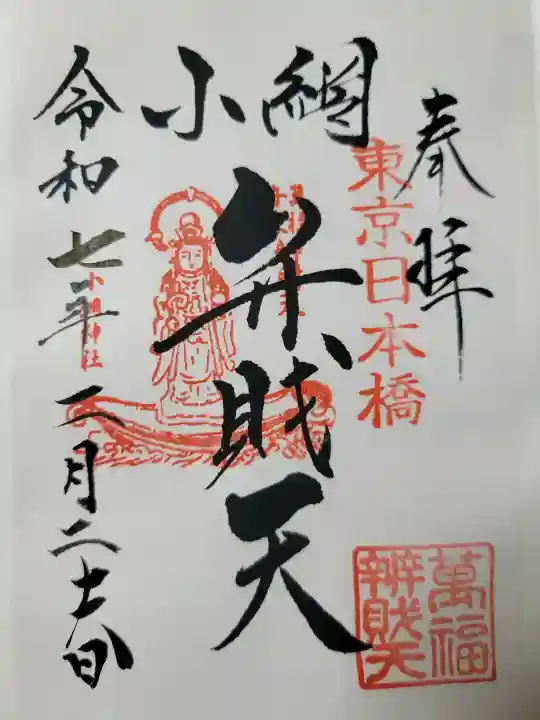 奉拝
東京日本橋
小網
弁財天
萬福
辨財天
小網神社
令和七年二月二十七日